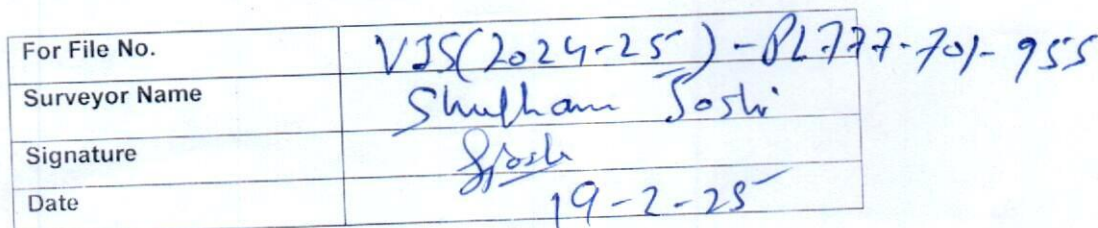 For File No. VIS(2024-25)-PL777-701-955
Surveyor Name Shubham Joshi
Signature SJoshi
Date 19-2-25